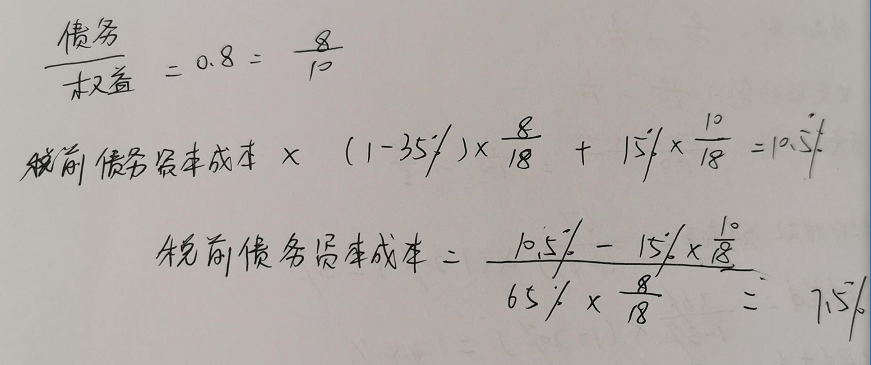 债务/权益 = 0.8 = 8/10
税前债务资本成本 × (1-35%)× 8/18 + 15% × 10/18 = 10.5%
税前债务资本成本 = (10.5% - 15% × 10/18) / (65% × 8/18) = 7.5%